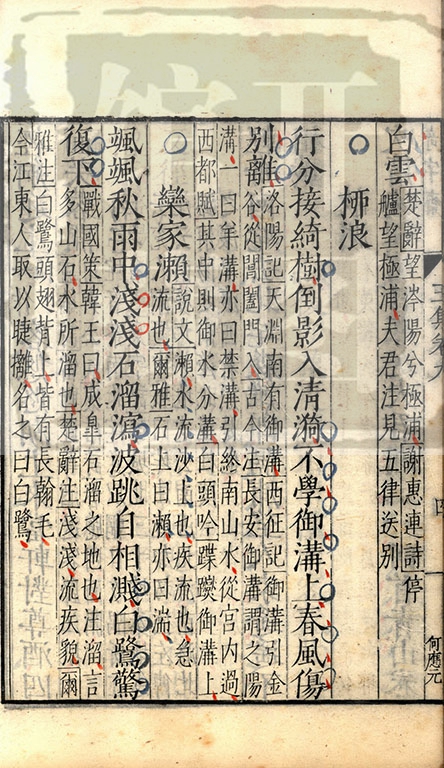 白雲楚辭望涔陽兮極浦謝惠連詩停
艫望極浦夫君注見五律送別
桺浪
行分接綺樹倒影入清漪不學御溝上春風傷
別離洛陽記天淵南有御溝西征記御溝引金
谷從閶闔門入古今注長安御溝謂之陽
溝一曰羊溝亦曰禁溝引終南山水從宮內過
西都賦其中則御水分溝白頭吟蹀躞御溝上
欒家瀨說文瀨水流沙上也疾流也急
流也爾雅石上曰瀨亦曰湍
颯颯秋雨中淺淺石溜瀉波跳自相濺白鷺驚
復下戰國策韓王曰成皐石溜之地也注溜言
多山石水所溜也楚辭注淺淺流疾貌爾
雅注白鷺頭翅背上皆有長翰毛
今江東人取以睫㰚名之曰白鷺
四
何應元